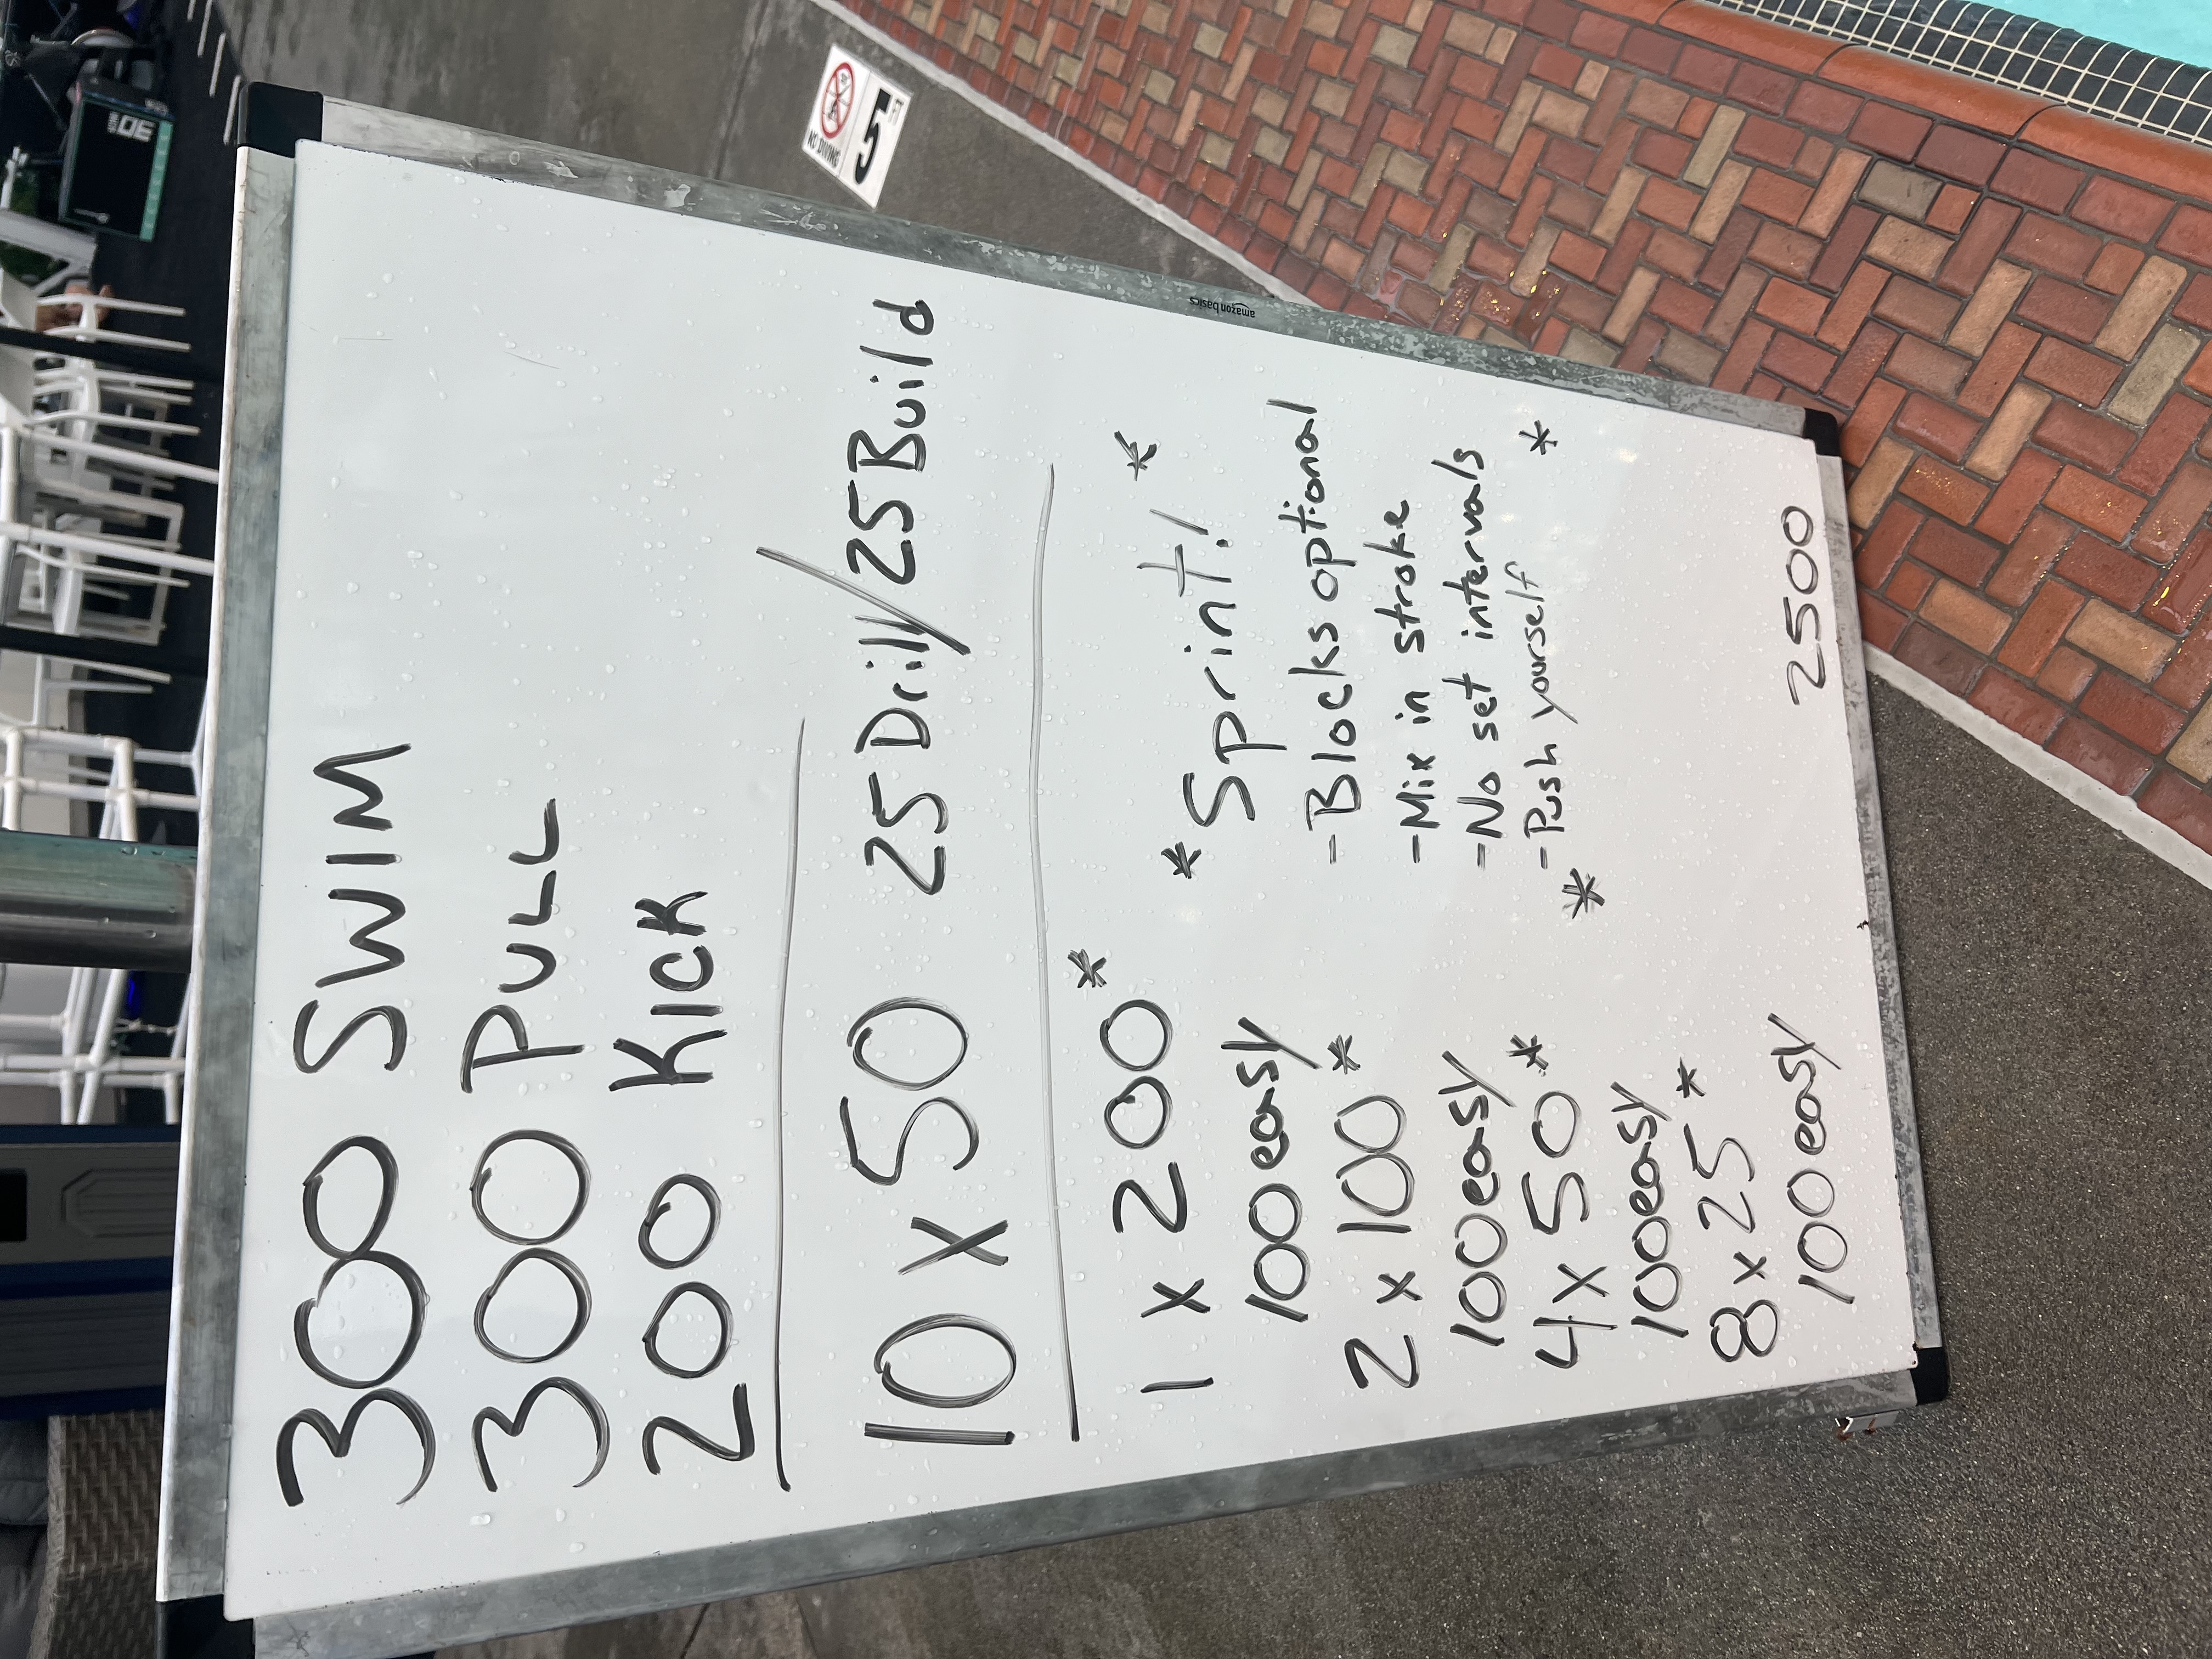 300 SWIM
300 PULL
200 KICK
10 x 50 25 Drill/25 Build
1 x 200*
100 easy
2 x 100*
100 easy
4 x 50*
100 easy
8 x 25*
100 easy
* Sprint! *
- Blocks optional
- Mix in stroke
- No set intervals
- Push yourself
* *
2500
amazon basics
NO DIVING
5 FT